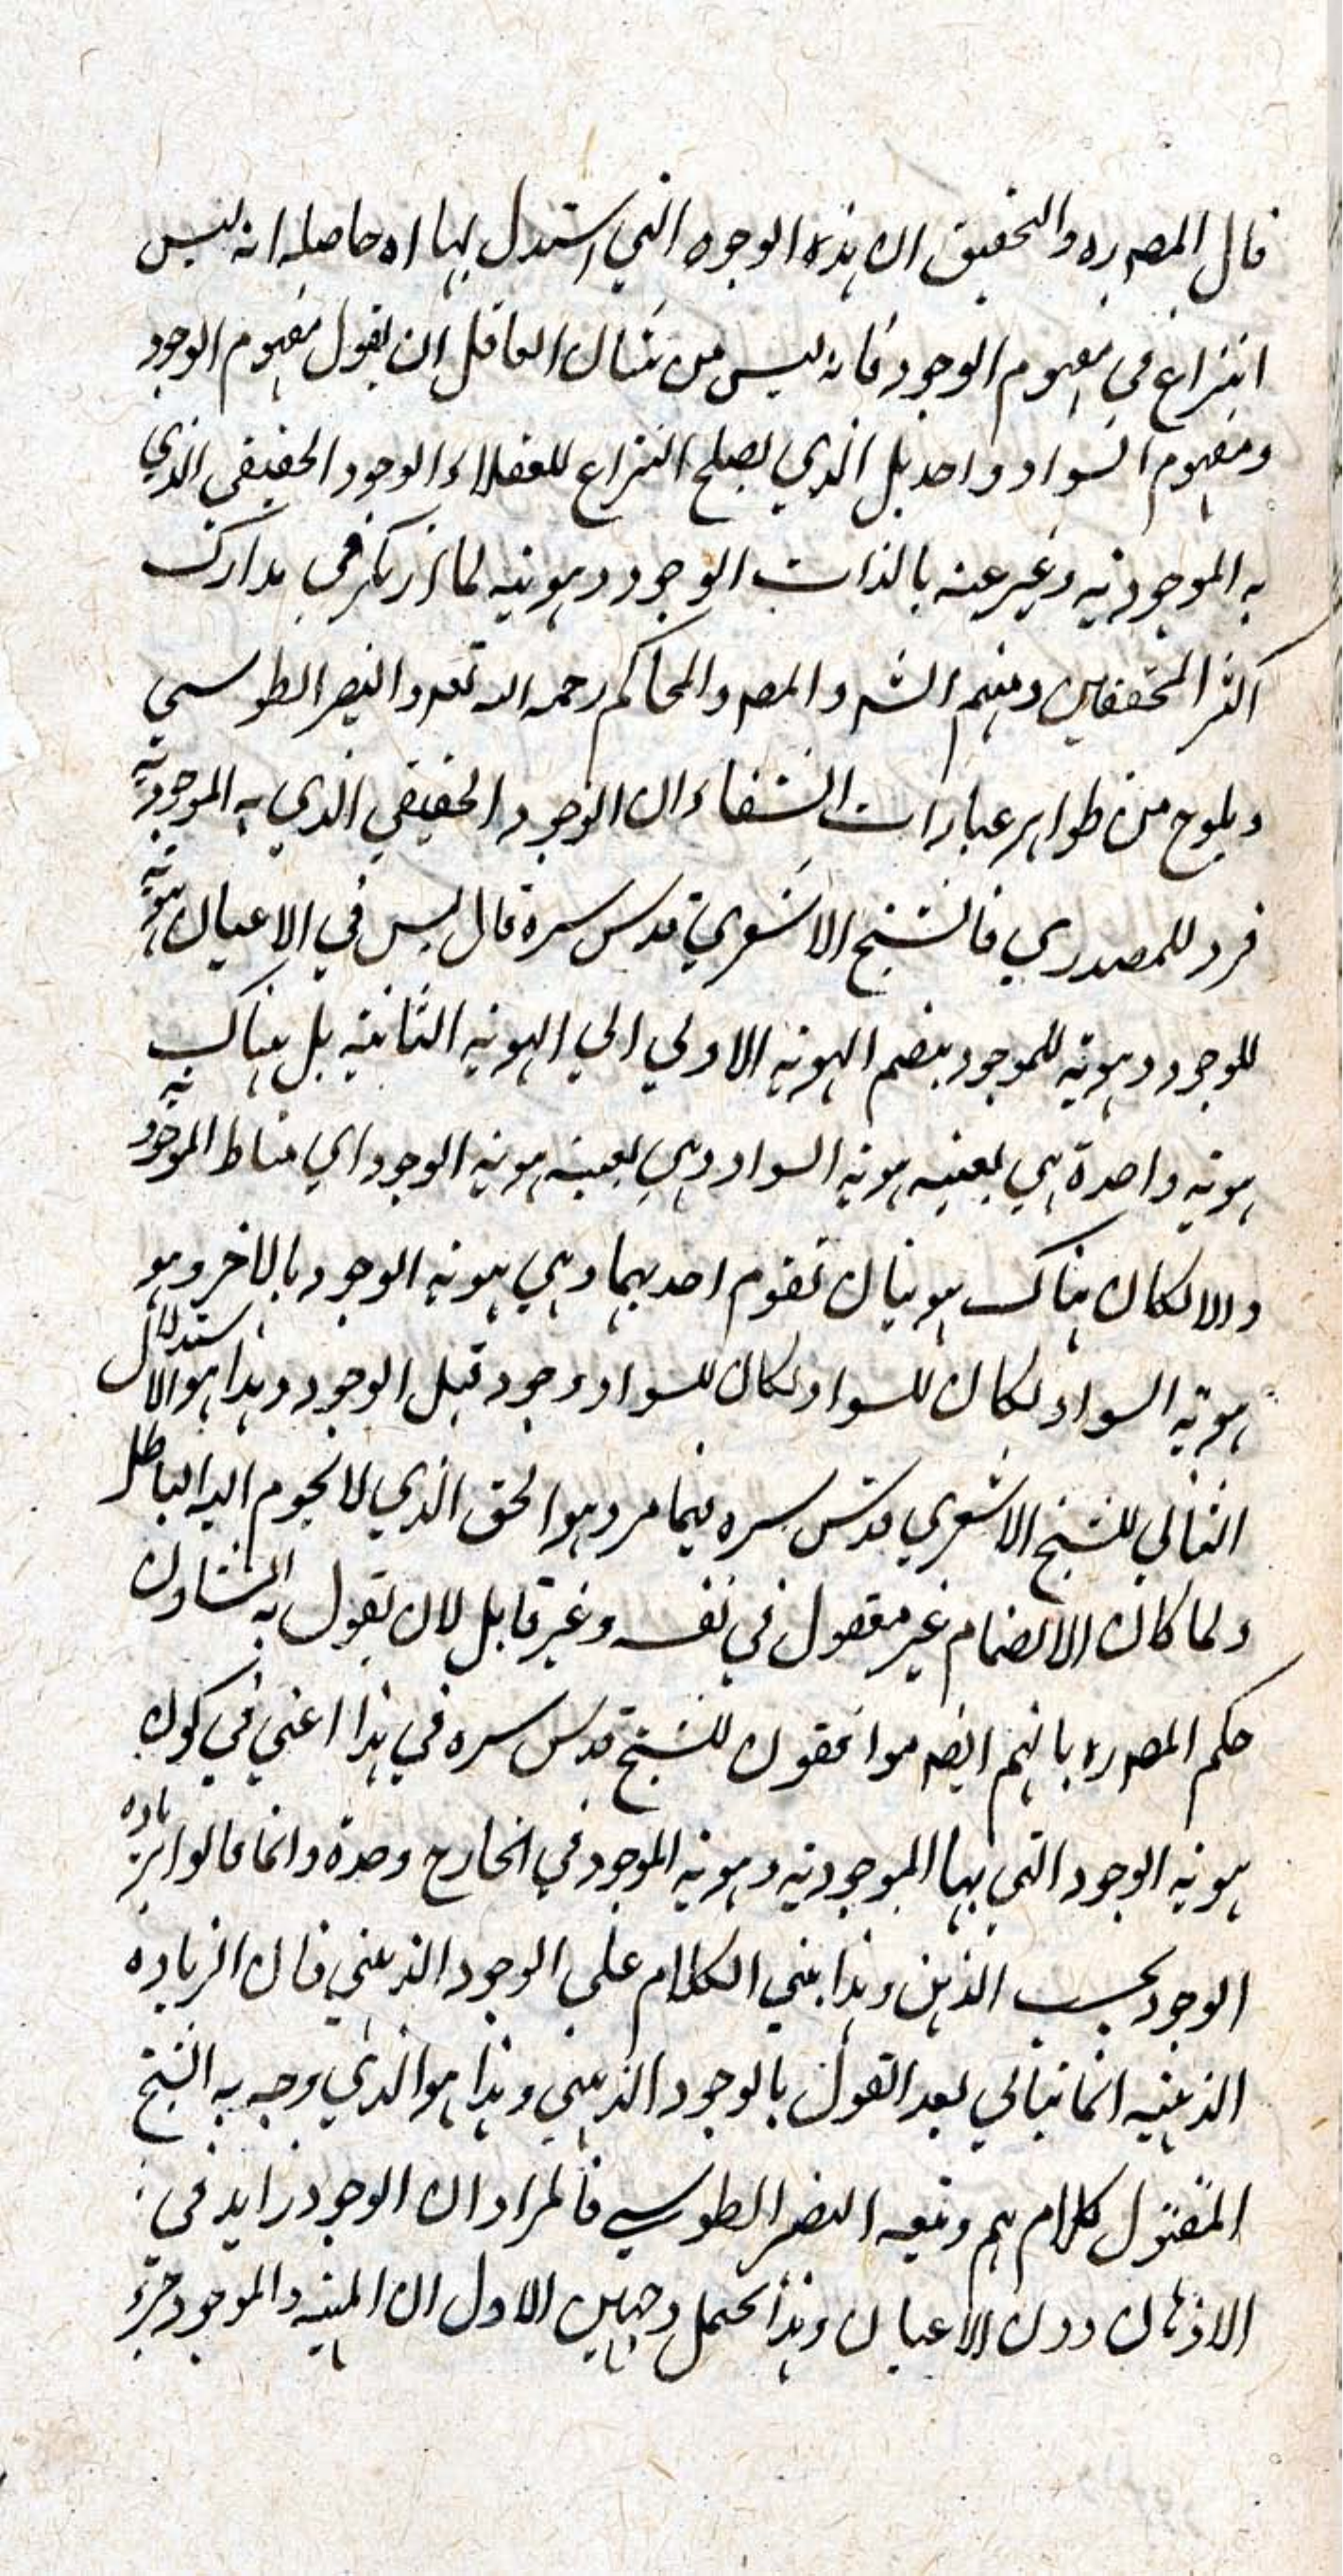 قال المصـ ره والتحقيق ان هذه الوجوه التي استدل بها اه حاصله انه ليس
النزاع في مفهوم الوجود فانه ليس من شان العاقل ان يقول مفهوم الوجود
ومفهوم السواد واحد بل الذي يصلح النزاع للعقلاء الوجود الحقيقي الذي
به الموجودية وغير عنه بالذات الوجود وهويته لما ارتكز في مدارك
اكثر المحققين ومنهم الشـ والمصـ والمحاكم رحمه الله تعـ والنصير الطوسي
ويلوح من ظواهر عبارات الشفاء ان الوجود الحقيقي الذي به الموجودية
فرد للمصدري فالشيخ الاشعري قدس سره قال ليس في الاعيان هوية
للوجود وهوية للموجود ينضم الهوية الاولي الي الهوية الثانية بل هناك
هوية واحدة هي بعينه هوية السواد وهي بعينه هوية الوجود اي مناط الموجودية
والا لكان هناك هويتان تقوم احديهما وهي هوية الوجود بالاخر وهو
هوية السواد لكان للسواد لكان للسواد وجود قبل الوجود وهذا هو الاستدلال
الثاني للشيخ الاشعري قدس سره فيما مر وهو الحق الذي لا يحوم اليه الباطل
ولما كان الانضمام غير معقول في نفسه وغير قابل لان يقول به المشاؤن
حكم المصـ ره بانهم ايضـ موافقون للشيخ قدس سره في هذا اعني في كون
هوية الوجود التي بها الموجودية وهوية الموجود في الخارج وحدة وانما قالوا بزيادة
الوجود بحسب الذهن وهذا يبني الكلام علي الوجود الذهني فان الزيادة
الذهنية انما يتاتي بعد القول بالوجود الذهني وهذا هو الذي وجه به الشيخ
المقتول كلامهم وتبعه النصير الطوسي فالمراد ان الوجود زايد في
الاذهان دون الاعيان وهذا يحتمل وجهين الاول ان المهية والموجود جزء